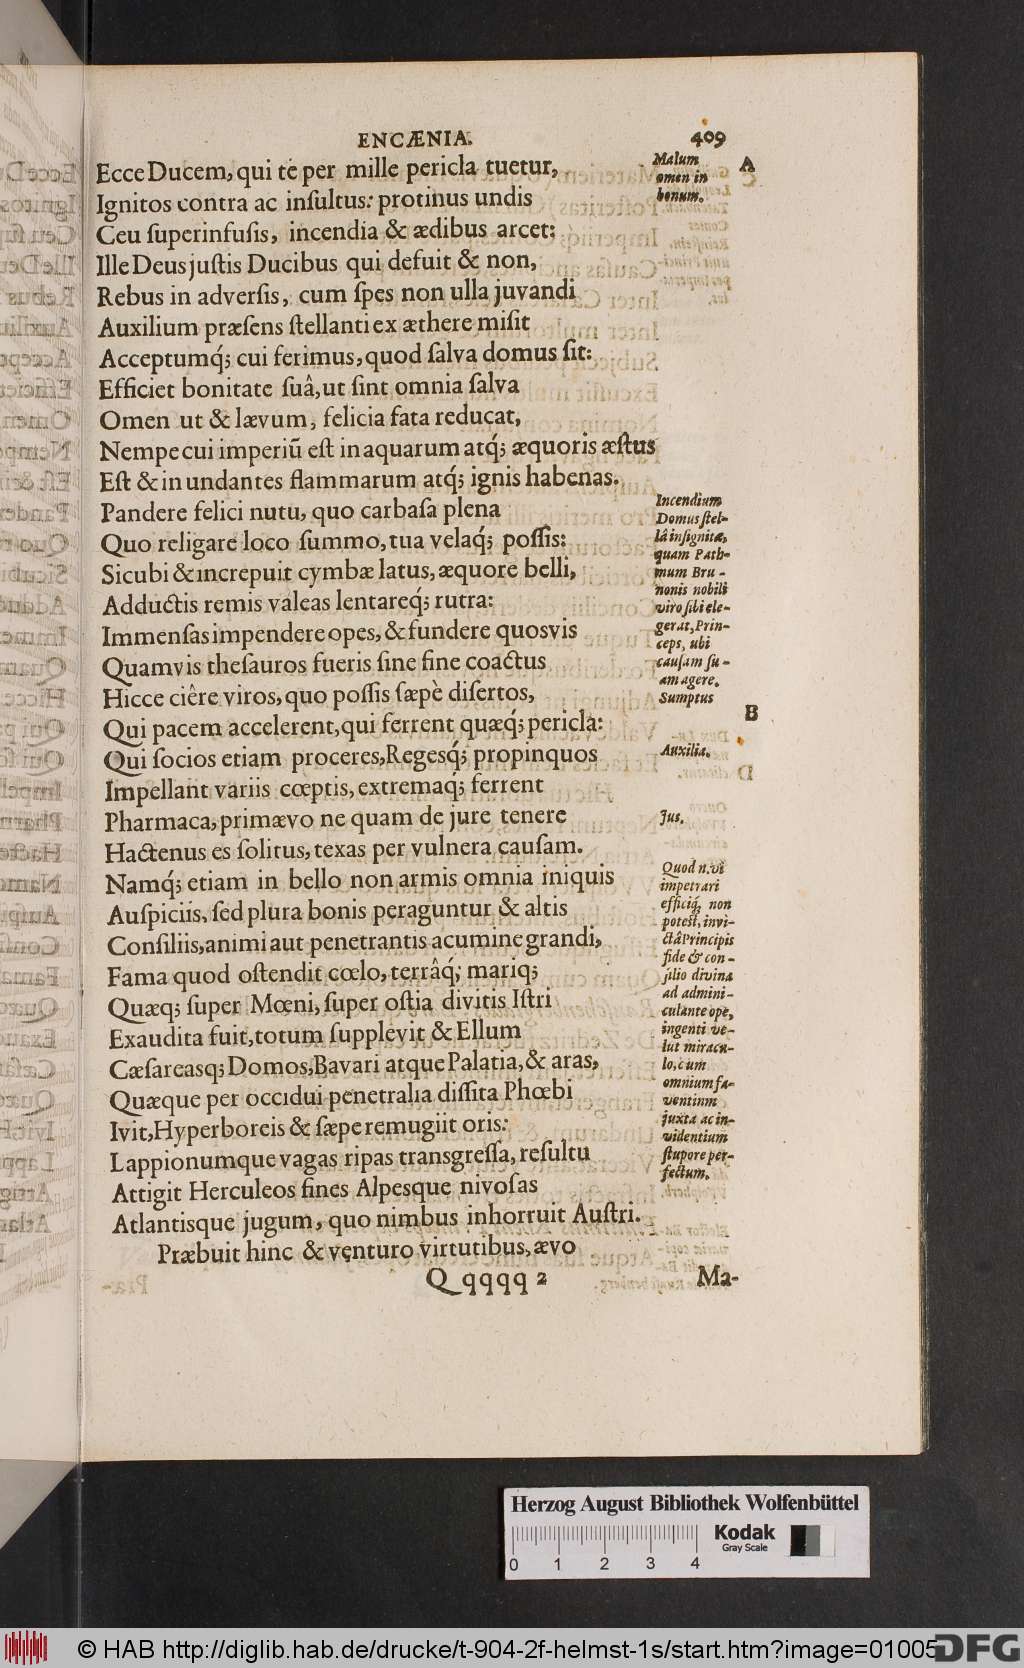 ENCÆNIA. 409
Ecce Ducem, qui te per mille pericla tuetur,
Ignitos contra ac inſultus: protinus undis
Ceu ſuperinfuſis, incendia & ædibus arcet:
Ille Deus juſtis Ducibus qui defuit & non,
Rebus in adverſis, cum ſpes non ulla juvandi
Auxilium præſens ſtellanti ex æthere miſit
Acceptumq́; cui ferimus, quod ſalva domus ſit:
Efficiet bonitate ſuâ, ut ſint omnia ſalva
Omen ut & lævum, felicia fata reducat,
Nempe cui imperiũ eſt in aquarum atq́; æquoris æſtus
Eſt & in undantes flammarum atq́; ignis habenas.
Pandere felici nutu, quo carbaſa plena
Quo religare loco ſummo, tua velaq́; poſſis:
Sicubi & increpuit cymbæ latus, æquore belli,
Adductis remis valeas lentareq́; rutra:
Immenſas impendere opes, & fundere quosvis
Quamvis theſauros fueris ſine fine coactus
Hicce ciêre viros, quo poſſis ſæpè diſertos,
Qui pacem accelerent, qui ferrent quæq́; pericla:
Qui ſocios etiam proceres, Regesq́; propinquos
Impellant variis cœptis, extremaq́; ferrent
Pharmaca, primævo ne quam de jure tenere
Hactenus es ſolitus, texas per vulnera cauſam.
Namq́; etiam in bello non armis omnia iniquis
Auſpiciis, ſed plura bonis peraguntur & altis
Conſiliis, animi aut penetrantis acumine grandi,
Fama quod oſtendit cœlo, terrâq́; mariq;
Quæq; ſuper Mœni, ſuper oſtia divitis Iſtri
Exaudita fuit, totum ſupplevit & Ellum
Cæſareasq; Domos, Bavari atque Palatia, & aras,
Quæque per occidui penetralia diſſita Phœbi
Ivit, Hyperboreis & ſæpe remugiit oris:
Lappionumque vagas ripas transgreſſa, reſultu
Attigit Herculeos fines Alpesque nivoſas
Atlantisque jugum, quo nimbus inhorruit Auſtri.
Præbuit hinc & venturo virtutibus, ævo
Qqqqq 2 Ma-
Malum
omen in
bonum.
A
Incendium
Domus ſtel-
lâ inſignitæ,
quam Path-
mum Bru-
nonis nobili
viro ſibi ele-
gerat, Prin-
ceps, ubi
cauſam ſu-
am agere.
Sumptus
B
Auxilia.
Jus.
Quod n. vi
impetrari
efficiq́, non
poteſt, invi-
ctâ Principis
fide & con-
ſilio divina
ad admini-
culante ope,
ingenti ve-
lut miracu-
lo, cum
omnium fa-
ventium
juxta ac in-
videntium
ſtupore per-
fectum.
Herzog August Bibliothek Wolfenbüttel
Kodak
Gray Scale
0 1 2 3 4
© HAB http://diglib.hab.de/drucke/t-904-2f-helmst-1s/start.htm?image=01005
DFG